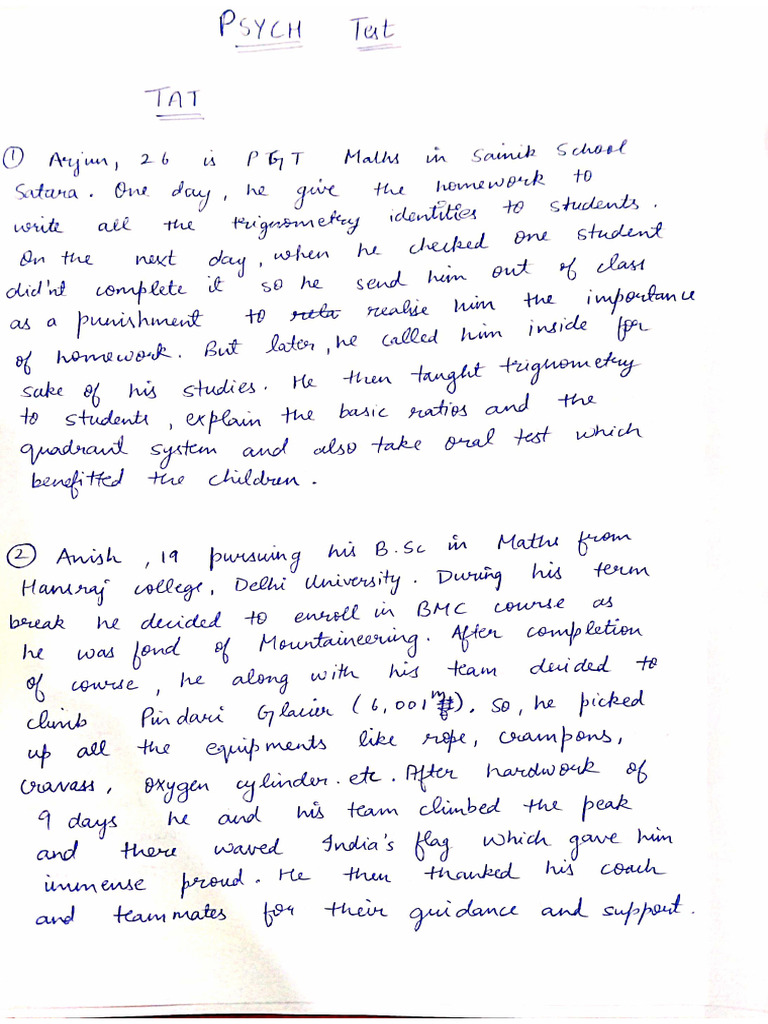 PSYCH Test
TAT
① Arjun, 26 is PGT Maths in Sainik School
Satara. One day, he give the homework to
write all the trignometry identities to students.
On the next day, when he checked one student
did'nt complete it so he send him out of class
as a punishment to rela realise him the importance
of homework. But later, he called him inside for
sake of his studies. He then taught trignometry
to students, explain the basic ratios and the
quadrant system and also take oral test which
benefitted the children.
② Anish, 19 pursuing his B.Sc in Maths from
Hansraj college, Delhi University. During his term
break he decided to enroll in BMC course as
he was fond of Mountaineering. After completion
of course, he along with his team decided to
climb Pindari Glacier (6,001 m). So, he picked
up all the equipments like rope, crampons,
cravass, oxygen cylinder. etc. After hardwork of
9 days he and his team climbed the peak
and there waved India's flag which gave him
immense proud. He then thanked his coach
and teammates for their guidance and support.